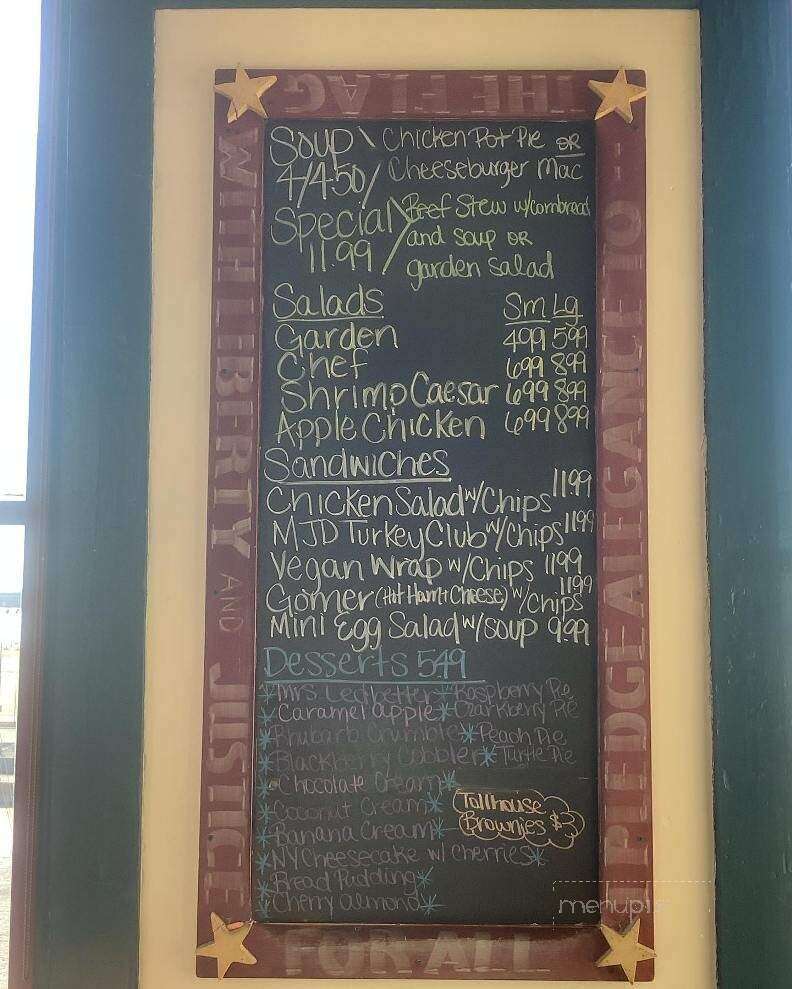 THE FLAG
Soup \ Chicken Pot Pie OR
4/4.50 / Cheeseburger Mac
Special \ Beef Stew w/cornbread
11.99 / and soup OR
garden salad
Salads Sm Lg
Garden 499 599
Chef 699 899
Shrimp Caesar 699 899
Apple Chicken 699 899
Sandwiches
Chicken Salad w/Chips 1199
MJD Turkey Club w/Chips 1199
Vegan Wrap w/Chips 1199
Gomer (Hot Ham + Cheese) w/chips 1199
Mini Egg Salad w/soup 9.99
Desserts 5.49
*Mrs. Ledbetter *Raspberry Pie
*Caramel apple *Ozarkberry Pie
*Rhubarb Crumble *Peach Pie
*Blackberry Cobbler *Turtle Pie
*Chocolate Cream*
*Coconut Cream*
*Banana Cream*
*NY Cheesecake w/ cherries*
*Bread Pudding*
*Cherry almond*
Tollhouse
Brownies $3
I PLEDGE ALEGANCE TO
WITH LIBERTY AND JUSTICE
FOR ALL
menupix